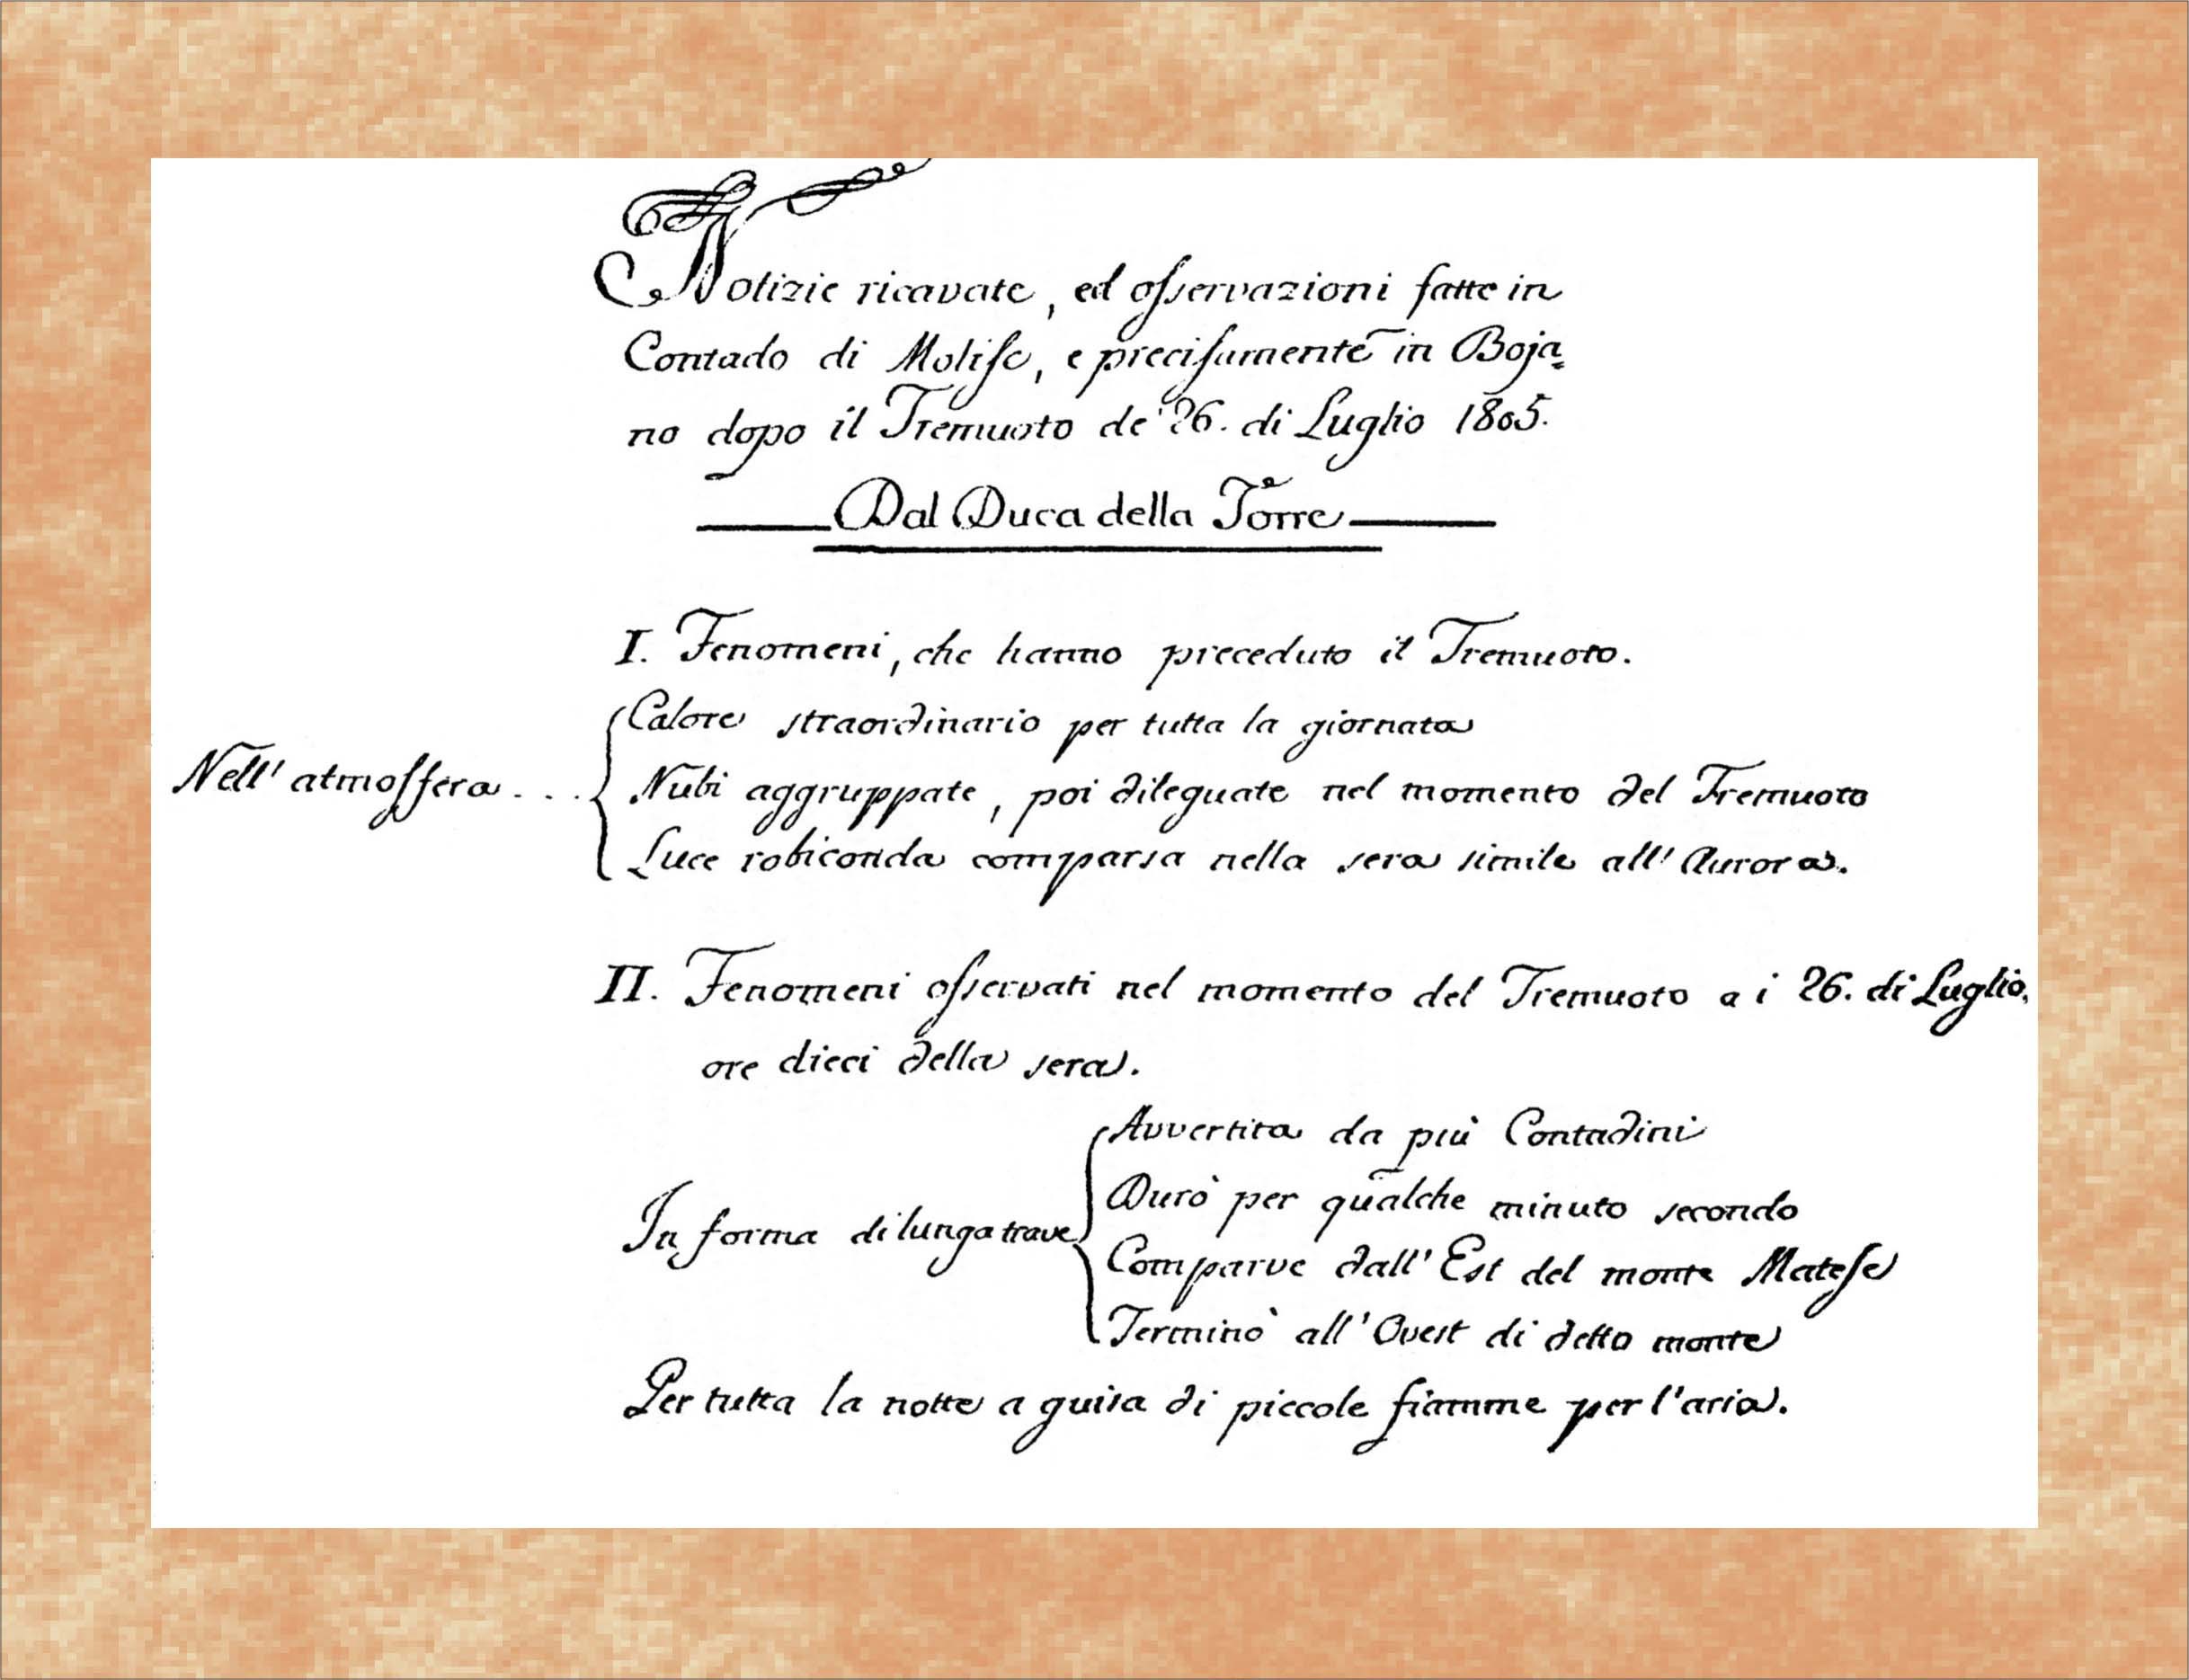 Notizie ricavate, ed osservazioni fatte in
Contado di Molise, e precisamente in Boja=
no dopo il Tremuoto de' 26. di Luglio 1805.
Dal Duca della Torre
I. Fenomeni, che hanno preceduto il Tremuoto.
Calore straordinario per tutta la giornata
Nell' atmosfera . . . Nubi aggruppate, poi dileguate nel momento del Tremuoto
Luce robiconda comparsa nella sera simile all' Aurora.
II. Fenomeni osservati nel momento del Tremuoto a i 26. di Luglio,
ore dieci della sera.
Avvertita da più Contadini
Durò per qualche minuto secondo
In forma di lunga trave
Comparve dall' Est del monte Matese
Terminò all' Ovest di detto monte
Per tutta la notte a guisa di piccole fiamme per l'aria.